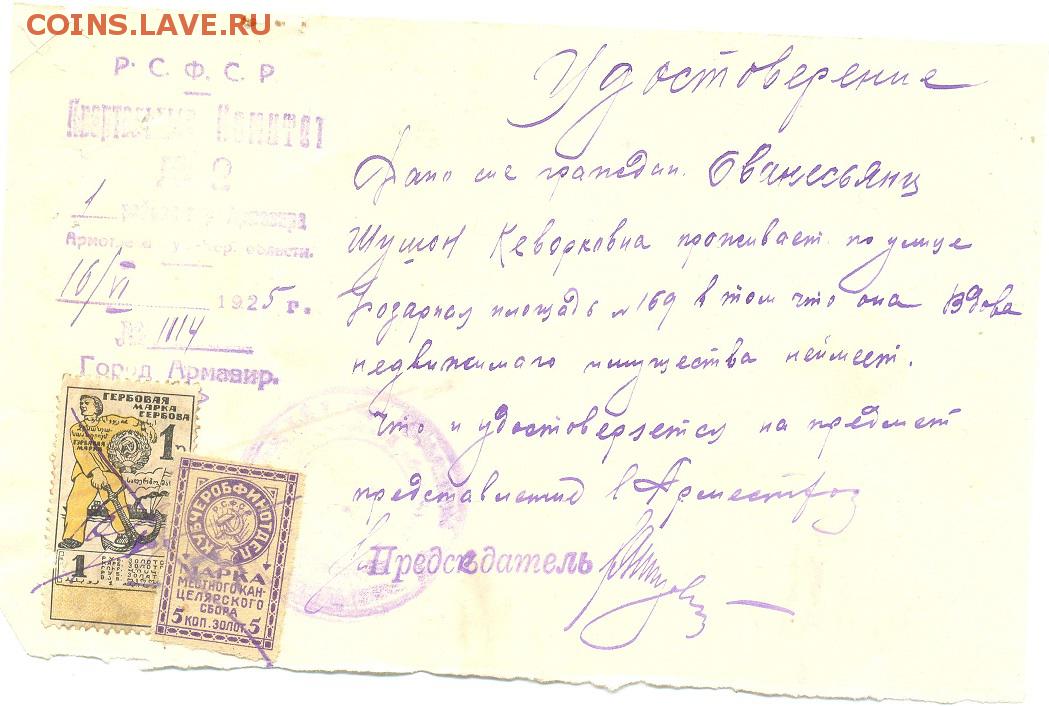 COINS.LAVE.RU
Р. С. Ф. С. Р
Квартальный Комитет
№ 2
1 района г. Армавира
16/VI 1925 г.
№ 1114
Город Армавир.
Удостоверение
Дано сие граждан. Ованесьянц
Шушан Кеворковна проживает по улице
Базарная площадь № 169 в том что она Вдова
недвижимаго имущества неймеет.
Что и удостоверяется на предмет
представления в
Председатель
ГЕРБОВАЯ
МАРКА
ГЕРБОВА
1
ГЕРБОВАЯ
МАРКА
1
КУБЧЕРОБФИНОТДЕЛ
РСФСР
МАРКА
МЕСТНОГО КАН-
ЦЕЛЯРСКОГО
СБОРА
5 КОП. ЗОЛОТ. 5